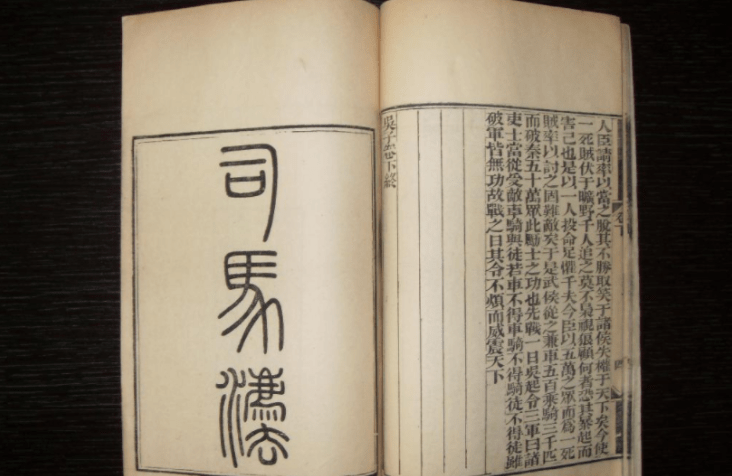 人臣請率以當之脫其不勝取笑于諸侯失權于天下矣今使
一死賊伏于曠野千人追之莫不梟視狼顧何者恐其暴起而
害己也是以一人投命足懼千夫今臣以五萬之眾而為一死
賊率以討之固難敵矣于是武侯從之兼車五百乘騎三千匹
而破秦五十萬眾此勵士之功也先戰一日吳起令三軍曰諸
吏士當從受敵車騎與徒若車不得車騎不得騎徒不得徒雖
破軍皆無功故戰之日其令不煩而威震天下
吳子卷下終
司馬灋